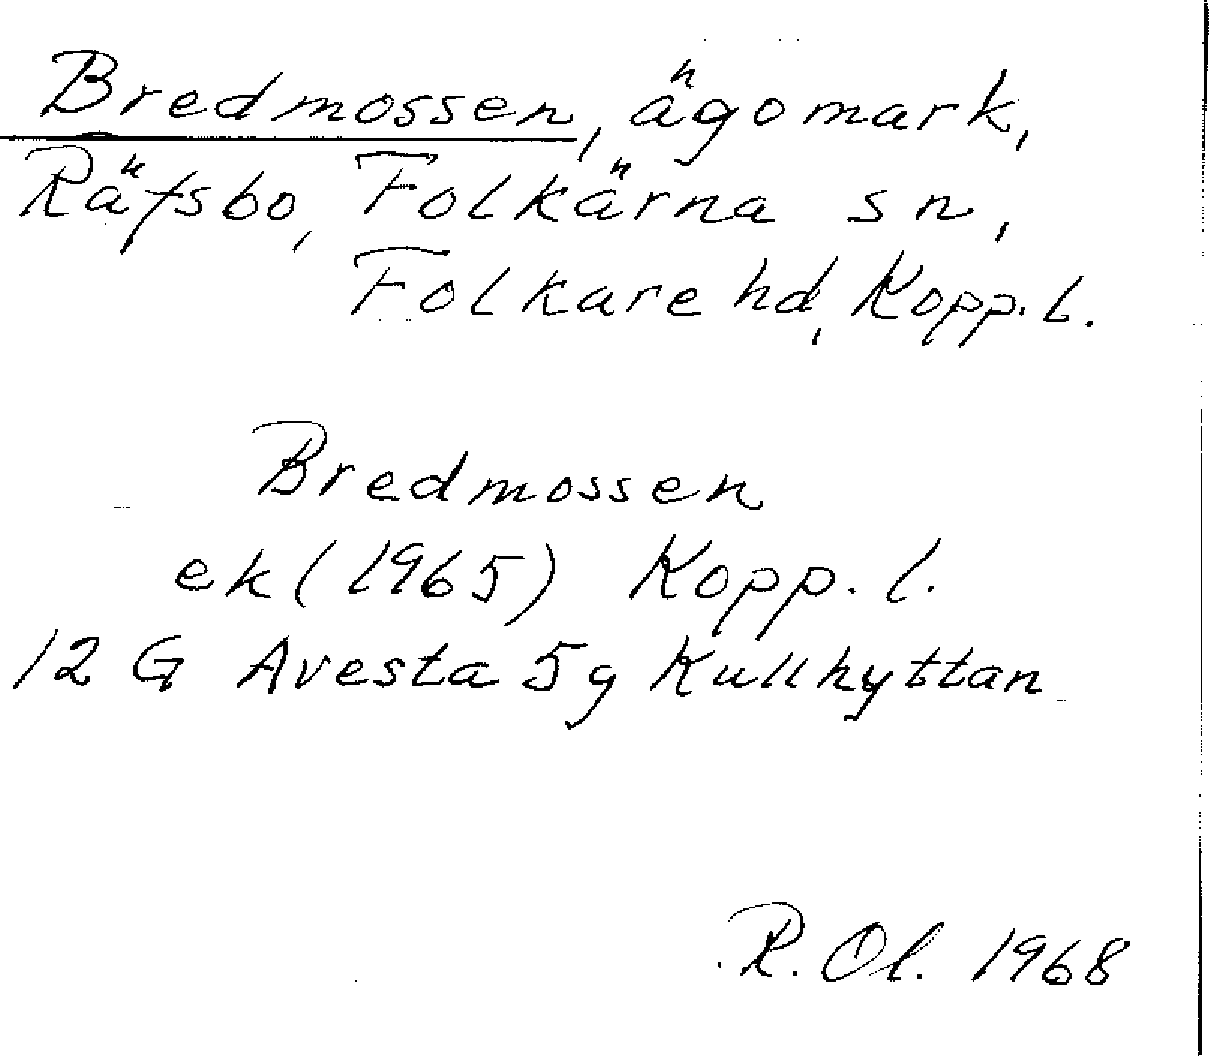 Bredmossen, ägomark,
Räfsbo, Folkärna sn,
Folkare hd, Kopp. l.
Bredmossen
ek (1965) Kopp. l.
12 G Avesta 5g Kullhyttan
R. Ol. 1968